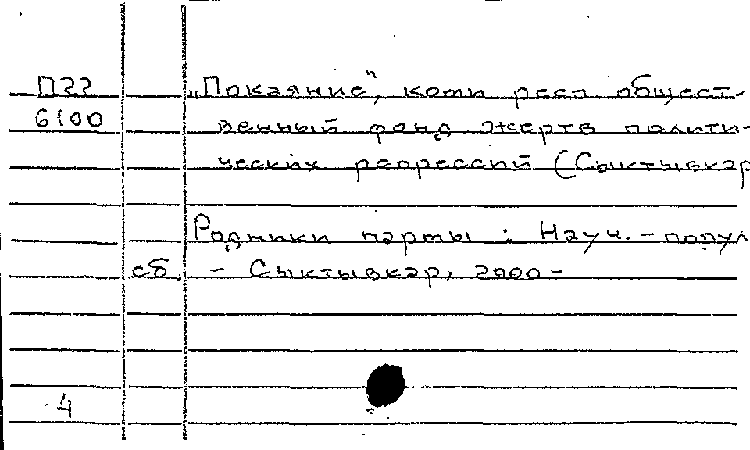 П22 „Покаяние", коми респ общест-
6100 венный фонд жертв полити-
ческих репрессий (Сыктывкар
Родники пармы : Науч. - попул
сб. - Сыктывкар, 2000 -
4